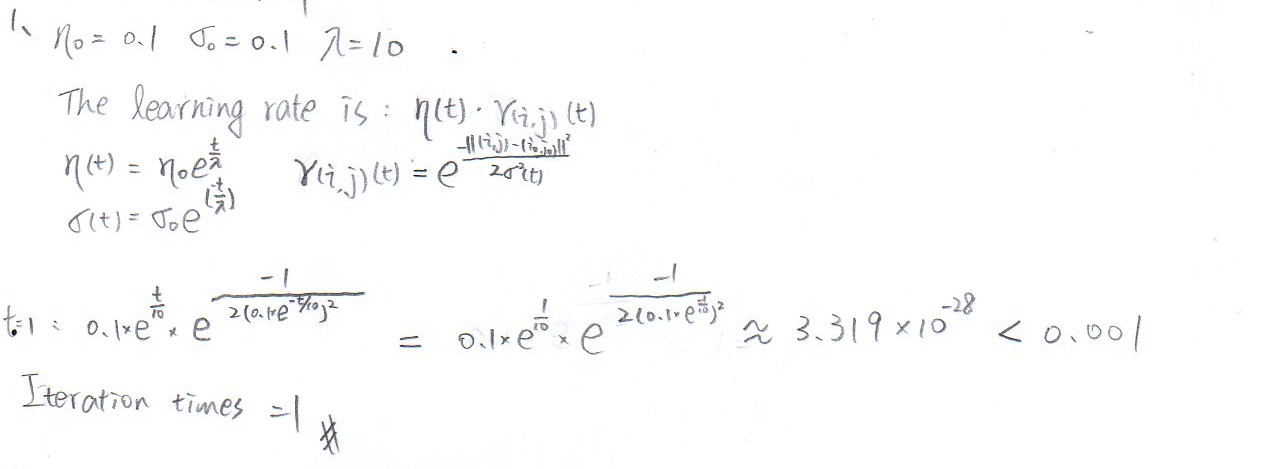 1、 η₀ = 0.1 σ₀ = 0.1 λ = 10 .
The learning rate is : η(t) · γ(i,j) (t)
η(t) = η₀e^(t/λ) γ(i,j)(t) = e^(-||(i,j)-(i₀,j₀)||² / 2σ²(t))
σ(t) = σ₀e^(-t/λ)
t=1 : 0.1×e^(t/10) × e^(-1 / 2(0.1×e^(-t/10))²) = 0.1×e^(1/10) × e^(-1 / 2(0.1×e^(-1/10))²) ≈ 3.319 × 10^-28 < 0.001
Iteration times = 1 #